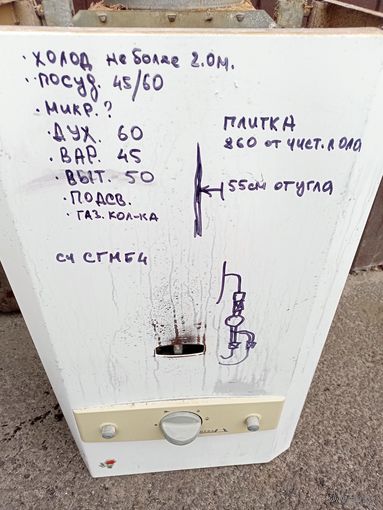 · ХОЛОД не более 2.0м.
· ПОСУД. 45/60
· МИКР. ?
· ДУХ. 60
· ВАР. 45
· ВЫТ. 50
· ПОДСВ.
· ГАЗ. КОЛ-КА
ПЛИТКА
860 от чист. пола
55см от угла
сч СГМБ4